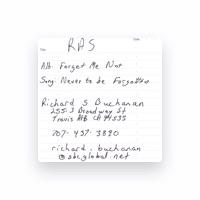 RAS
Date
Title
Alt: Forget Me Not
Song: Never to be Forgotten
Richard S Buchanan
255-3 Broadway St
Travis AFB CA 94535
707-437-3890
richard.buchanan
@sbcglobal.net